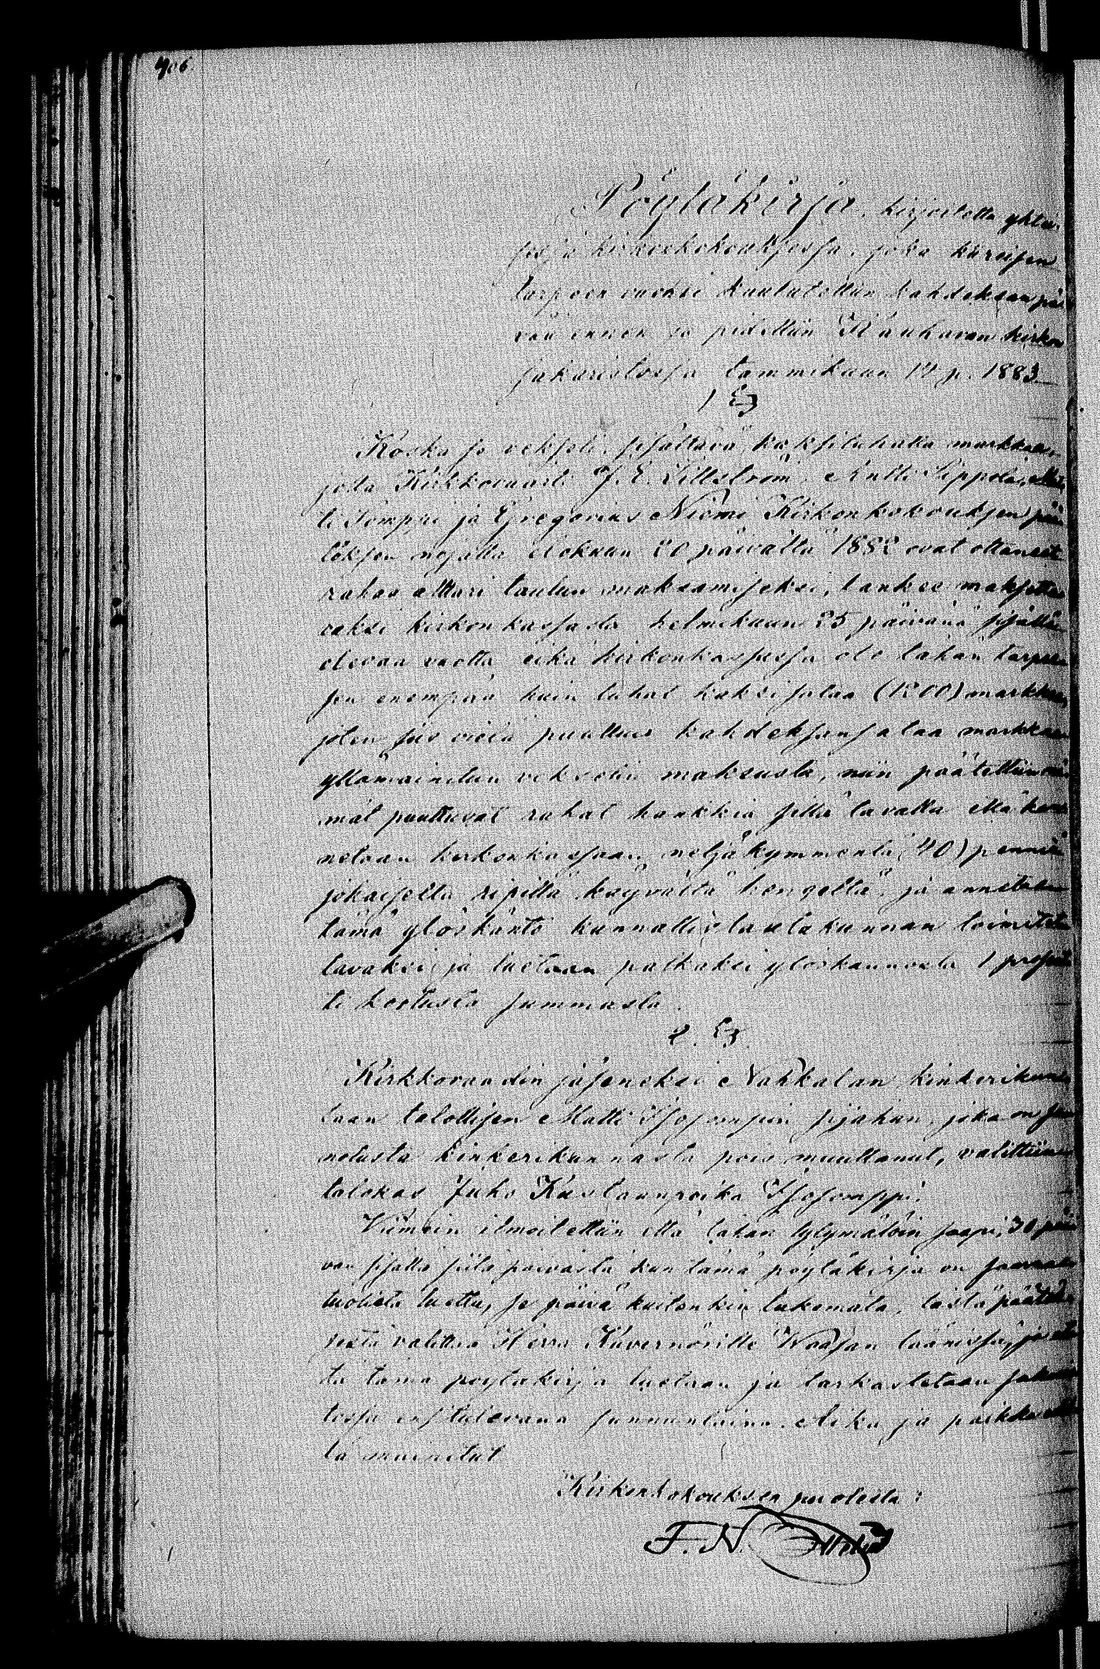 406
Pöytäkirja, kirjoitettu yhtei-
sessä kirkonkokouksessa, joka kuresisen
tarpeen vuoksi kuulutettiin kahdeksan päi-
vää ennen ja pidettiin Kauhavan kirkon
sakaristossa tammikuun 14 p. 1883
1 §
Koska se vekseli, sisältävä kaksituhatta markkaa,
jota Kirkkovaarti J. E. Lillström, Antti Sippola, Mat-
ti Somppi ja Gregorius Niemi Kirkonkokouksen pää-
töksen nojalla elokuun 20 päivältä 1882 ovat ottaneet
rahaa alttari taulun maksamiseksi, lankee maksetta-
vaksi kirkonkassasta helmikuun 25 päivänä sisällä
olevaa vuotta eikä kirkonkassassa ole tähän tarpee-
sen enempää kuin tuhat kaksisataa (1200) markkaa,
joten siis vielä puuttuu kahdeksansataa markkaa
yllämainitun vekselin maksusta, niin päätettiin nä-
mät puuttuvat rahat hankkia sillä tavalla että kan-
netaan kirkonkassaan neljäkymmentä (40) penniä
jokaiselta ripillä käyvältä hengeltä, ja annetaan
tämä ylöskanto kunnallislautakunnan toimitet-
tavaksi ja luetaan palkaksi ylöskannosta 1 prosent-
ti kootusta summasta.
2. §.
Kirkkovaadin jäseneksi Nahkalan kinkerikun-
taan talollisen Matti Isosompin sijahan, joka on
notusta kinkerikunnasta pois muuttanut, valittiin
talokas Juho Kustaanpoika Isosomppi.
Viimein ilmoitettiin että tähän tytymätöin saapi, 30 päi-
vän sisällä siitä päivästä kun tämä pöytäkirja on saarna-
tuolista luettu, se päivä kuitenkin lukemata, tästä päätök-
sestä valittaa Herra Kuvernörille Waasan läänissä,
tä tämä pöytäkirja luetaan ja tarkastetaan
tossa ensitulevana sunnuntaina. Aika ja paikka
lä mainitut
Kirkonkokouksen puolesta:
F. H.